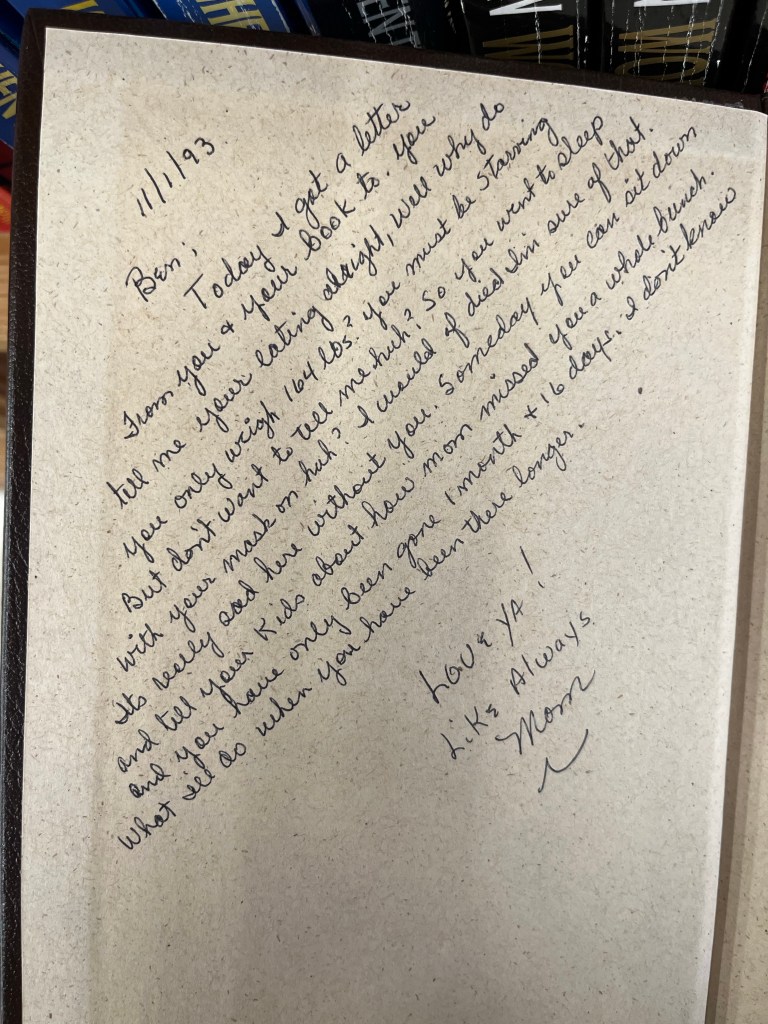 11/1/93
Ben;
Today I got a letter
from you & your book to. you
tell me your eating alright, well why do
you only weigh 164 lbs? you must be starving
But don't want to tell me huh? So you went to sleep
with your mask on huh? I would of died Im sure of that.
Its really sad here without you. Someday you can sit down
and tell your kids about how mom missed you a whole bunch.
and you have only been gone 1 month & 16 days. I don't know
what I'll do when you have been there longer.
Love Ya!
Like Always
Mom